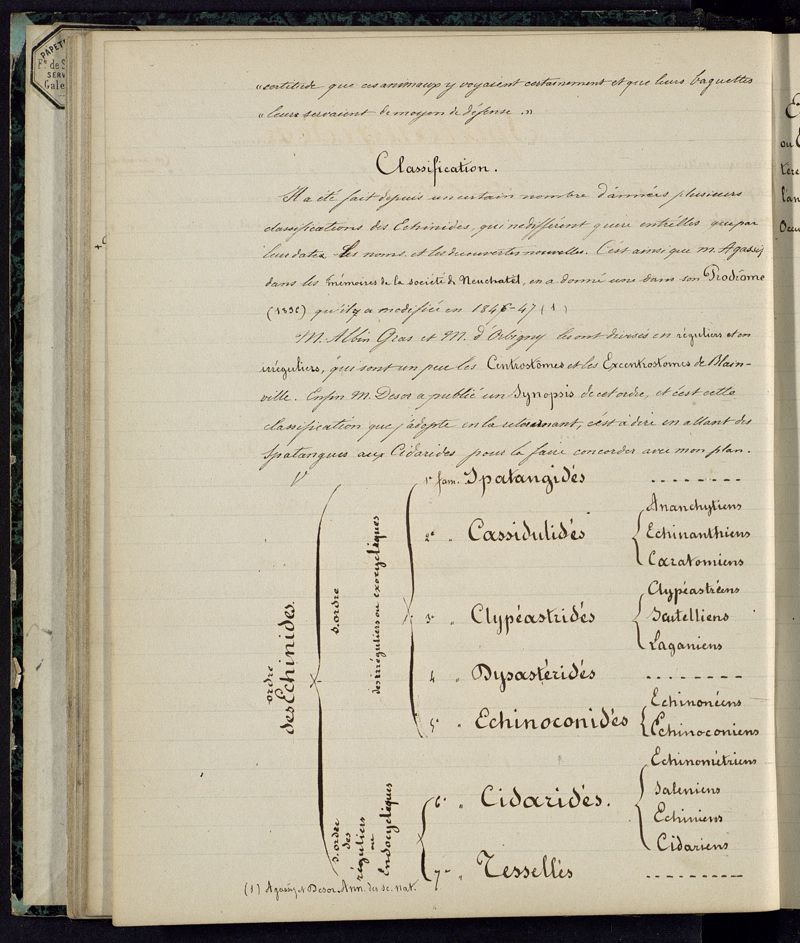 PAPET
Fe de S
SERV
Gale
"certitude que ces animaux y voyaient certainement et que leurs baguettes
"leurs servaient de moyen de défense."
Classification.
Il a été fait depuis un certain nombre d'années plusieurs
classifications des Echinides, qui ne diffèrent guère entr'elles que par
leur date, les noms et les découvertes nouvelles. C'est ainsi que M. Agassiz
dans les mémoires de la société de Neuchatel, en a donné une dans son Prodrôme
qu'il y a modifiée en 1846-47 (1)
M. Albin Gras et M. d'Orbigny les ont divisés en réguliers et en
irréguliers, qui sont un peu les Centrostomes et les Excentrostomes de Blain-
ville. Enfin M. Desor a publié un Synopsis de cet ordre, et c'est cette
classification que j'adopte en la retournant, c'est à dire en allant des
Spatangues aux Cidarides pour la faire concorder avec mon plan.
ordre
des Echinides.
s. ordre
des irréguliers ou exocycliques
1e fam. Spatangidés - - - - - - - -
2e " Cassidulidés
Ananchytiens
Echinanthiens
Caratomiens
3e " Clypéastridés
Clypéastréens
Scutelliens
Laganiens
4 " Dysastéridés - - - - - - - -
5e " Echinoconidés
Echinonéens
Echinoconiens
s. ordre
des
réguliers
ou
Endocycliques
6e " Cidaridés.
Echinométriens
Saleniens
Echiniens
Cidariens
7e " Tessellés - - - - - - - - -
(1) Agassiz & Desor. Ann. des sc. nat.